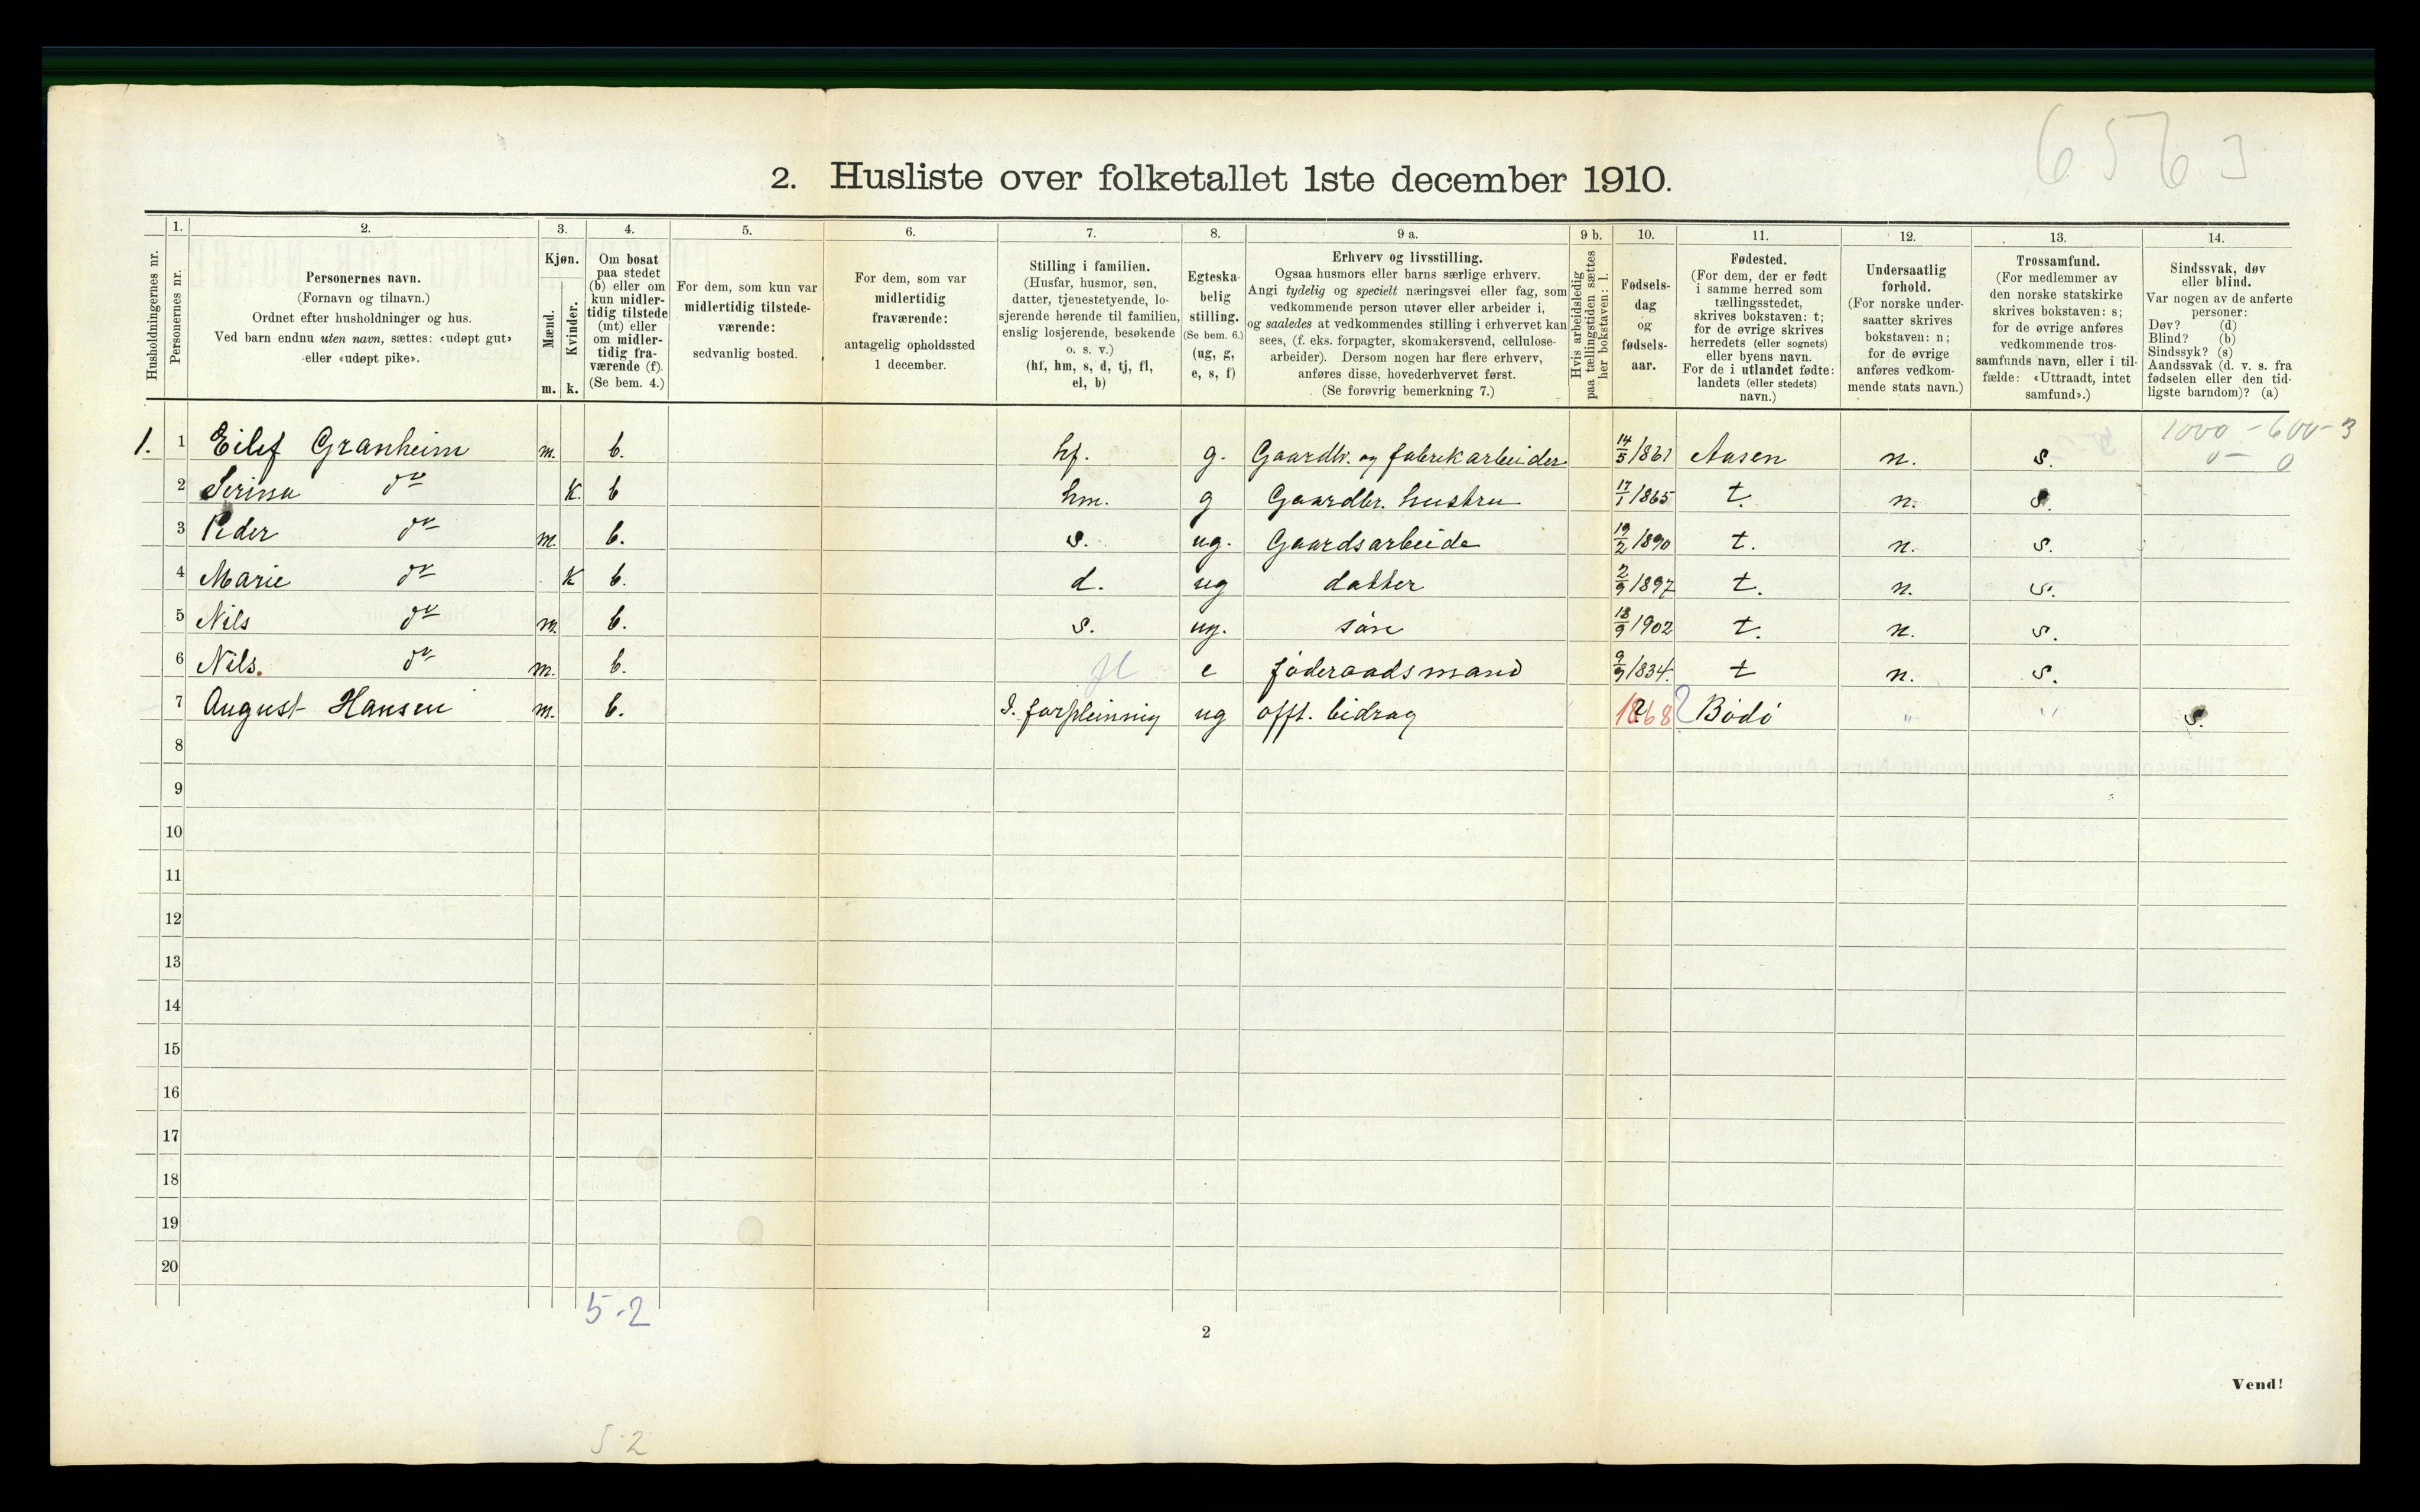 6563
2. Husliste over folketallet 1ste december 1910.
Husholdningernes nr.
1.
Personernes nr.
2.
Personernes navn.
(Fornavn og tilnavn.)
Ordnet efter husholdninger og hus.
Ved barn endnu uten navn, sættes: «udøpt gut»
eller «udøpt pike».
3.
Kjøn.
Mænd.
Kvinder.
m. k.
4.
Om bosat
paa stedet
(b) eller om
kun midler-
tidig tilstede
(mt) eller
om midler-
tidig fra-
værende (f).
(Se bem. 4.)
5.
For dem, som kun var
midlertidig tilstede-
værende:
sedvanlig bosted.
6.
For dem, som var
midlertidig
fraværende:
antagelig opholdssted
1 december.
7.
Stilling i familien.
(Husfar, husmor, søn,
datter, tjenestetyende, lo-
sjerende hørende til familien,
enslig losjerende, besøkende
o. s. v.)
(hf, hm, s, d, tj, fl,
el, b)
8.
Egteska-
belig
stilling.
(Se bem. 6.)
(ug, g,
e, s, f)
9 a.
Erhverv og livsstilling.
Ogsaa husmors eller barns særlige erhverv.
Angi tydelig og specielt næringsvei eller fag, som
vedkommende person utøver eller arbeider i,
og saaledes at vedkommendes stilling i erhvervet kan
sees, (f. eks. forpagter, skomakersvend, cellulose-
arbeider). Dersom nogen har flere erhverv,
anføres disse, hovederhvervet først.
(Se forøvrig bemerkning 7.)
9 b.
Hvis arbeidsledig
paa tællingstiden sættes
her bokstaven: l.
10.
Fødsels-
dag
og
fødsels-
aar.
11.
Fødested.
(For dem, der er født
i samme herred som
tællingsstedet,
skrives bokstaven: t;
for de øvrige skrives
herredets (eller sognets)
eller byens navn.
For de i utlandet fødte:
landets (eller stedets)
navn.)
12.
Undersaatlig
forhold.
(For norske under-
saatter skrives
bokstaven: n;
for de øvrige
anføres vedkom-
mende stats navn.)
13.
Trossamfund.
(For medlemmer av
den norske statskirke
skrives bokstaven: s;
for de øvrige anføres
vedkommende tros-
samfunds navn, eller i til-
fælde: «Uttraadt, intet
samfund».)
14.
Sindssvak, døv
eller blind.
Var nogen av de anførte
personer:
Døv? (d)
Blind? (b)
Sindssyk? (s)
Aandssvak (d. v. s. fra
fødselen eller den tid-
ligste barndom)? (a)
1000 - 600 - 3
0 - 0
1. 1 Eilef Granheim m. b. hf. g. Gaardbr. og fabrikarbeider 14/5 1861 Aasen n. s.
2 Serina do K. b hm. g Gaardbr. hustru 17/1 1865 t. n. s.
3 Peder do m. b. s. ug. Gaardsarbeide 19/2 1890 t. n. s.
4 Marie do K b. d. ug datter 2/9 1897 t. n. s.
5 Nils do m. b. s. ug. søn 18/9 1902 t. n. s.
6 Nils. do m. b. fl e føderaadsmand 9/9 1834. t n. s.
7 August Hansen m. b. ug offt. bidrag 1868 ? Bodø " " s.
8
9
10
11
12
13
14
15
16
17
18
19
20
5-2
2
Vend!
5-2